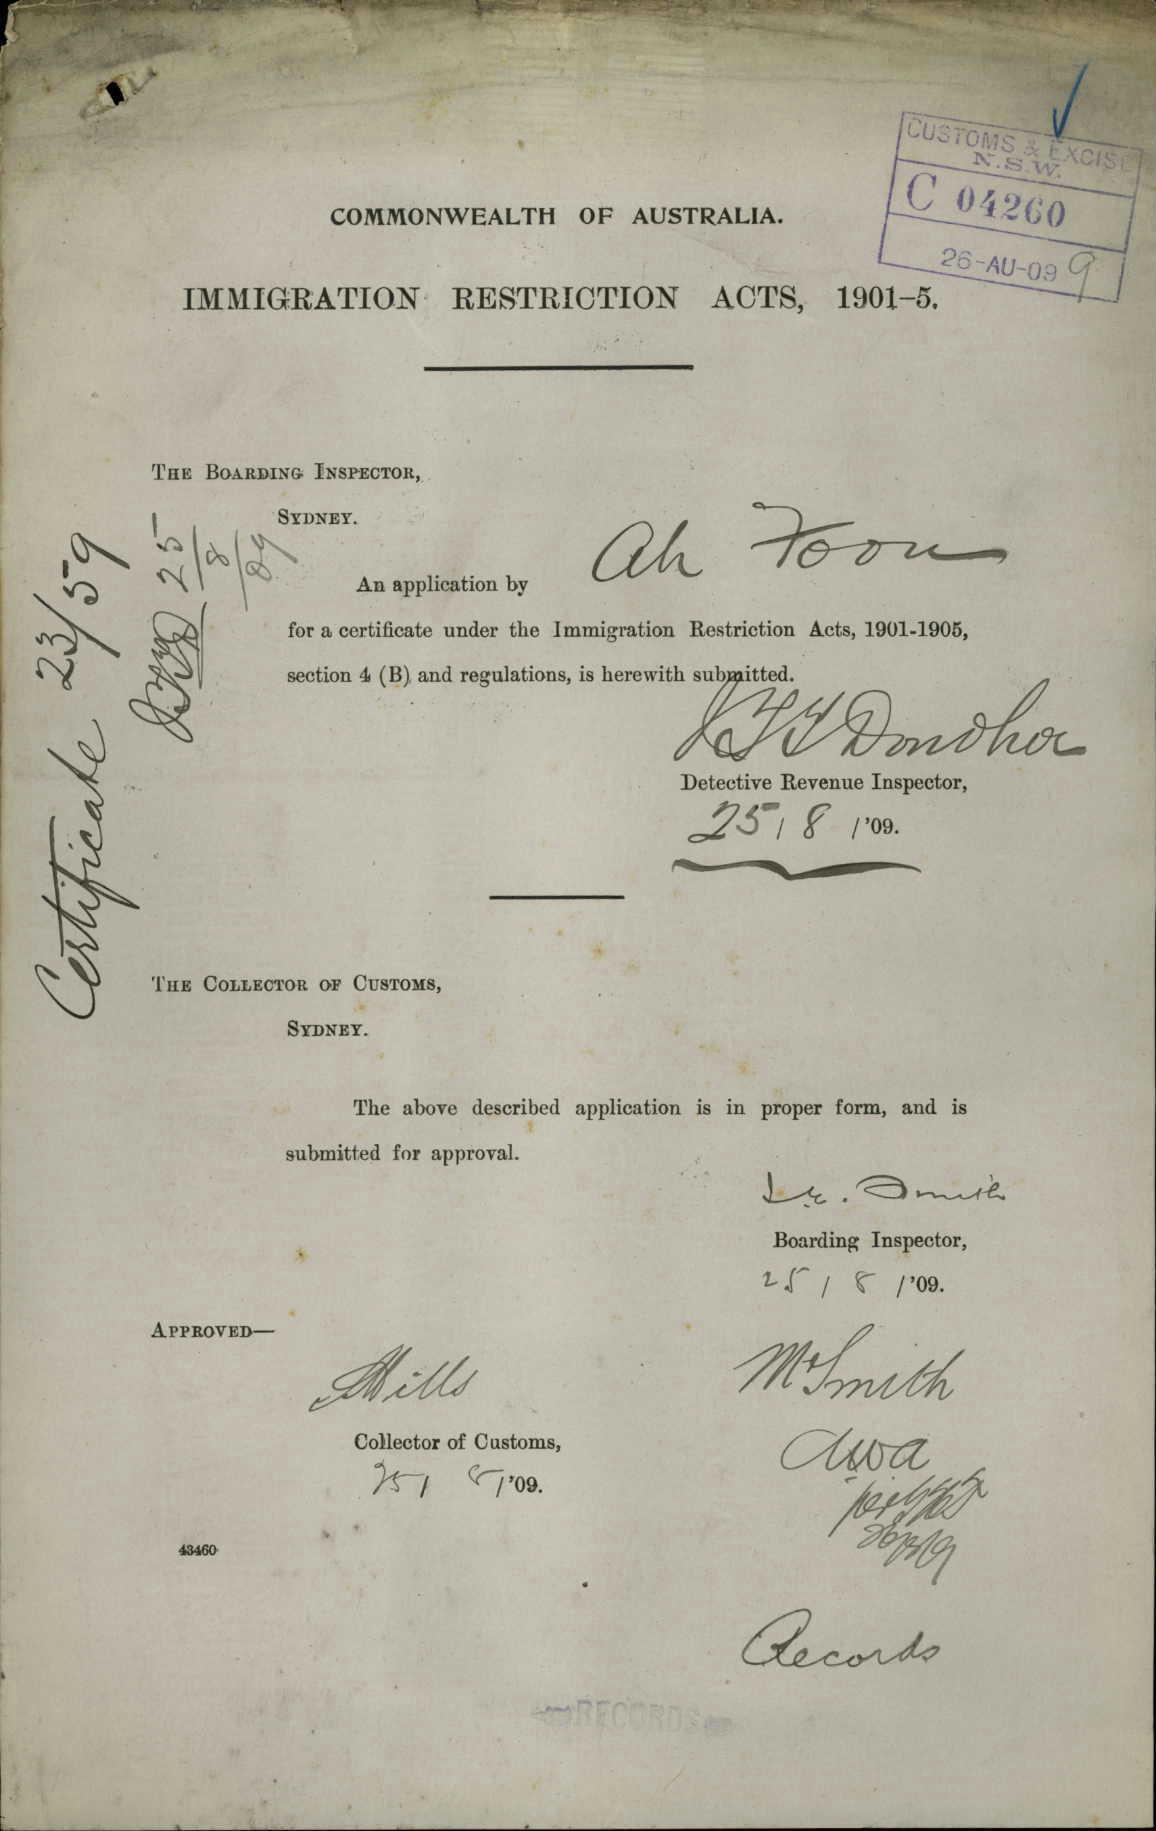 CUSTOMS & EXCISE
N.S.W.
C 04260
26-AU-09 9
COMMONWEALTH OF AUSTRALIA.
IMMIGRATION RESTRICTION ACTS, 1901-5.
THE BOARDING INSPECTOR,
SYDNEY.
An application by Ah Foon
for a certificate under the Immigration Restriction Acts, 1901-1905,
section 4 (B) and regulations, is herewith submitted.
Donohoe
Detective Revenue Inspector,
25/8/'09.
Certificate 23/59
25/8/09
THE COLLECTOR OF CUSTOMS,
SYDNEY.
The above described application is in proper form, and is
submitted for approval.
Smith
Boarding Inspector,
25/8/'09.
APPROVED—
Mills
Collector of Customs,
25/8/'09.
Mr Smith
Records
43460
RECORDS